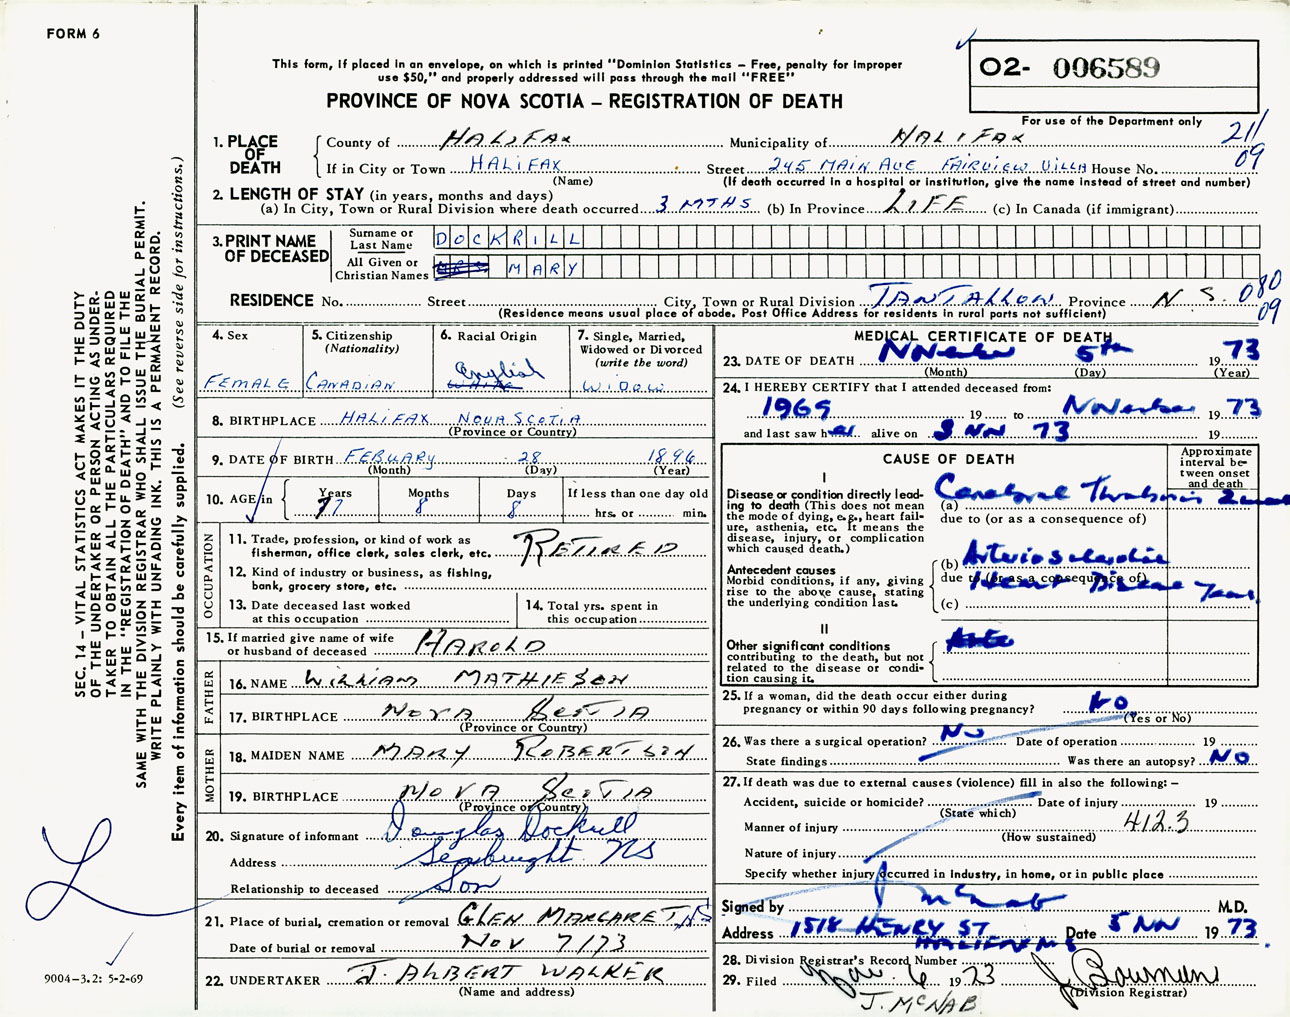 FORM 6
This form, if placed in an envelope, on which is printed "Dominion Statistics – Free, penalty for improper
use $50," and properly addressed will pass through the mail "FREE"
PROVINCE OF NOVA SCOTIA – REGISTRATION OF DEATH
02- 006589
For use of the Department only
21/
09
1. PLACE OF DEATH
County of HALIFAX Municipality of HALIFAX
If in City or Town HALIFAX Street 245 MAIN AVE FAIRVIEW VILLA House No.
(Name) (If death occurred in a hospital or institution, give the name instead of street and number)
2. LENGTH OF STAY (in years, months and days)
(a) In City, Town or Rural Division where death occurred 3 MTHS (b) In Province LIFE (c) In Canada (if immigrant)
3. PRINT NAME OF DECEASED
Surname or Last Name DOCKRILL
All Given or Christian Names MRS MARY
RESIDENCE No. Street City, Town or Rural Division TANTALLON Province N S. 080
09
(Residence means usual place of abode. Post Office Address for residents in rural parts not sufficient)
4. Sex
FEMALE
5. Citizenship
(Nationality)
CANADIAN
6. Racial Origin
English
WHITE
7. Single, Married,
Widowed or Divorced
(write the word)
WIDOW
8. BIRTHPLACE HALIFAX NOVA SCOTIA
(Province or Country)
9. DATE OF BIRTH FEBUARY 28 1896
(Month) (Day) (Year)
10. AGE in
Years Months Days If less than one day old
77 8 8 hrs. or min.
OCCUPATION
11. Trade, profession, or kind of work as
fisherman, office clerk, sales clerk, etc. RETIRED
12. Kind of industry or business, as fishing,
bank, grocery store, etc.
13. Date deceased last worked
at this occupation
14. Total yrs. spent in
this occupation
15. If married give name of wife
or husband of deceased HAROLD
FATHER
16. NAME WILLIAM MATHIESON
17. BIRTHPLACE NOVA SCOTIA
(Province or Country)
MOTHER
18. MAIDEN NAME MARY ROBERTSON
19. BIRTHPLACE NOVA SCOTIA
(Province or Country)
20. Signature of informant Douglas Dockrill
Address Seabright NS
Relationship to deceased Son
21. Place of burial, cremation or removal GLEN MARGARET, NS
Date of burial or removal NOV 7/73
22. UNDERTAKER J. ALBERT WALKER
(Name and address)
MEDICAL CERTIFICATE OF DEATH
23. DATE OF DEATH November 5th 1973
(Month) (Day) (Year)
24. I HEREBY CERTIFY that I attended deceased from:
1969 19 to November 1973
and last saw her alive on 3 Nov 73 19
CAUSE OF DEATH
Approximate
interval be-
tween onset
and death
I
Disease or condition directly lead-
ing to death (This does not mean
the mode of dying, e.g., heart fail-
ure, asthenia, etc. It means the
disease, injury, or complication
which caused death.)
(a) Cerebral Thrombosis
due to (or as a consequence of)
Antecedent causes
Morbid conditions, if any, giving
rise to the above cause, stating
the underlying condition last.
(b) Arteriosclerotic
due to (or as a consequence of)
Heart Disease Years
(c)
II
Other significant conditions
contributing to the death, but not
related to the disease or condi-
tion causing it.
25. If a woman, did the death occur either during
pregnancy or within 90 days following pregnancy? NO
(Yes or No)
26. Was there a surgical operation? No Date of operation 19
State findings Was there an autopsy? NO
27. If death was due to external causes (violence) fill in also the following: –
Accident, suicide or homicide? Date of injury 19
(State which)
Manner of injury 412.3
(How sustained)
Nature of injury
Specify whether injury occurred in industry, in home, or in public place
Signed by J McNab M.D.
Address 1518 HENRY ST Date 5 Nov 1973.
HALIFAX NS
28. Division Registrar's Record Number
29. Filed Nov. 6 1973 J Bowman
(Division Registrar)
J. MCNAB
SEC. 14 – VITAL STATISTICS ACT MAKES IT THE DUTY
OF THE UNDERTAKER OR PERSON ACTING AS UNDER-
TAKER TO OBTAIN ALL THE PARTICULARS REQUIRED
IN THE "REGISTRATION OF DEATH" AND TO FILE THE
SAME WITH THE DIVISION REGISTRAR WHO SHALL ISSUE THE BURIAL PERMIT.
WRITE PLAINLY WITH UNFADING INK. THIS IS A PERMANENT RECORD.
Every item of information should be carefully supplied. (See reverse side for instructions.)
9004-3.2: 5-2-69